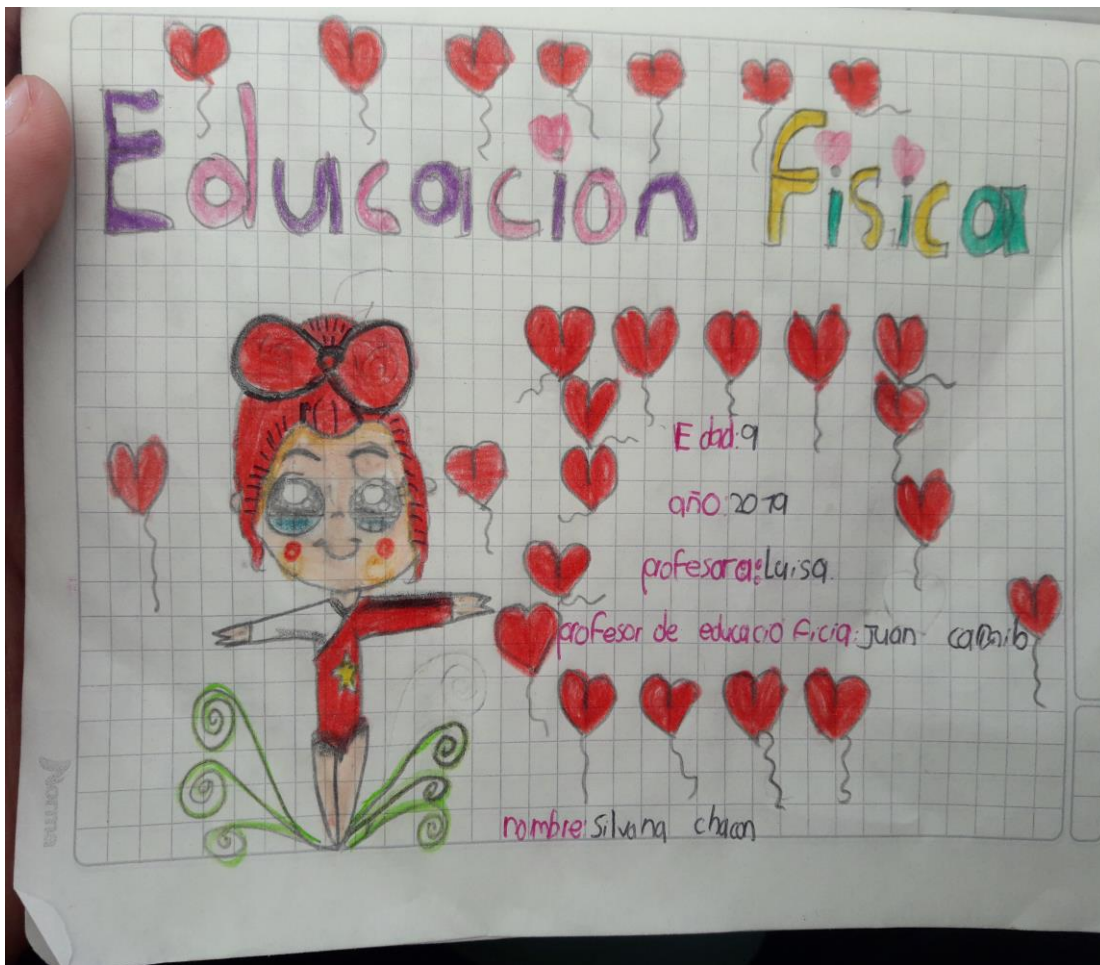 Educacion fisica
Edad:9
año:2019
profesora:Luisa.
profesor de educació ficia:Juan
nombre:Silvana chacon
Norma